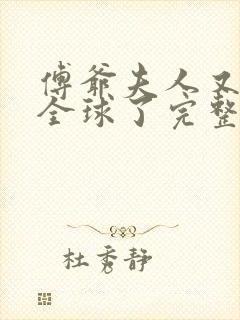 傅爺夫人又
全球了完整
杜秀静